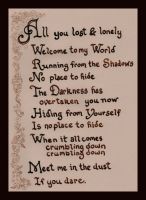 All you lost & lonely
Welcome to my World
Running from the Shadows
No place to hide
The Darkness has
overtaken you now
Hiding from Yourself
Is no place to hide
When it all comes
crumbling down
crumbling down
Meet me in the dust
If you dare.